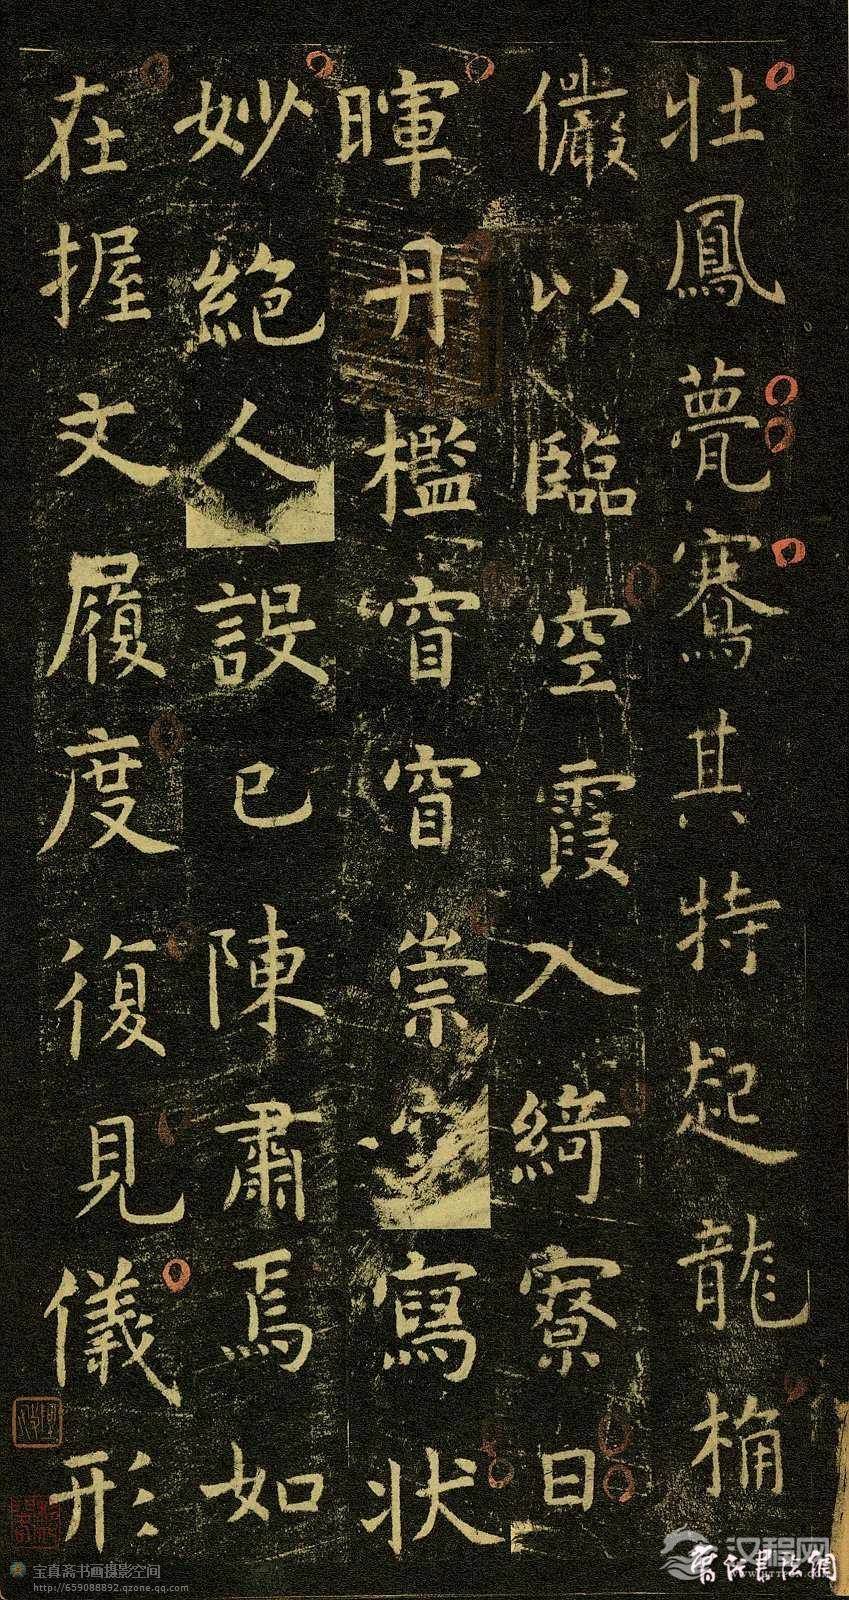 壯鳳甍騫其特起龍桷
儼以臨空霞入綺寮日
暉丹檻窅窅崇寫狀
妙絕人設已陳肅焉如
在握文履度復見儀形
宝真斋书画摄影空间
http://659088892.qzone.qq.com
汉程网